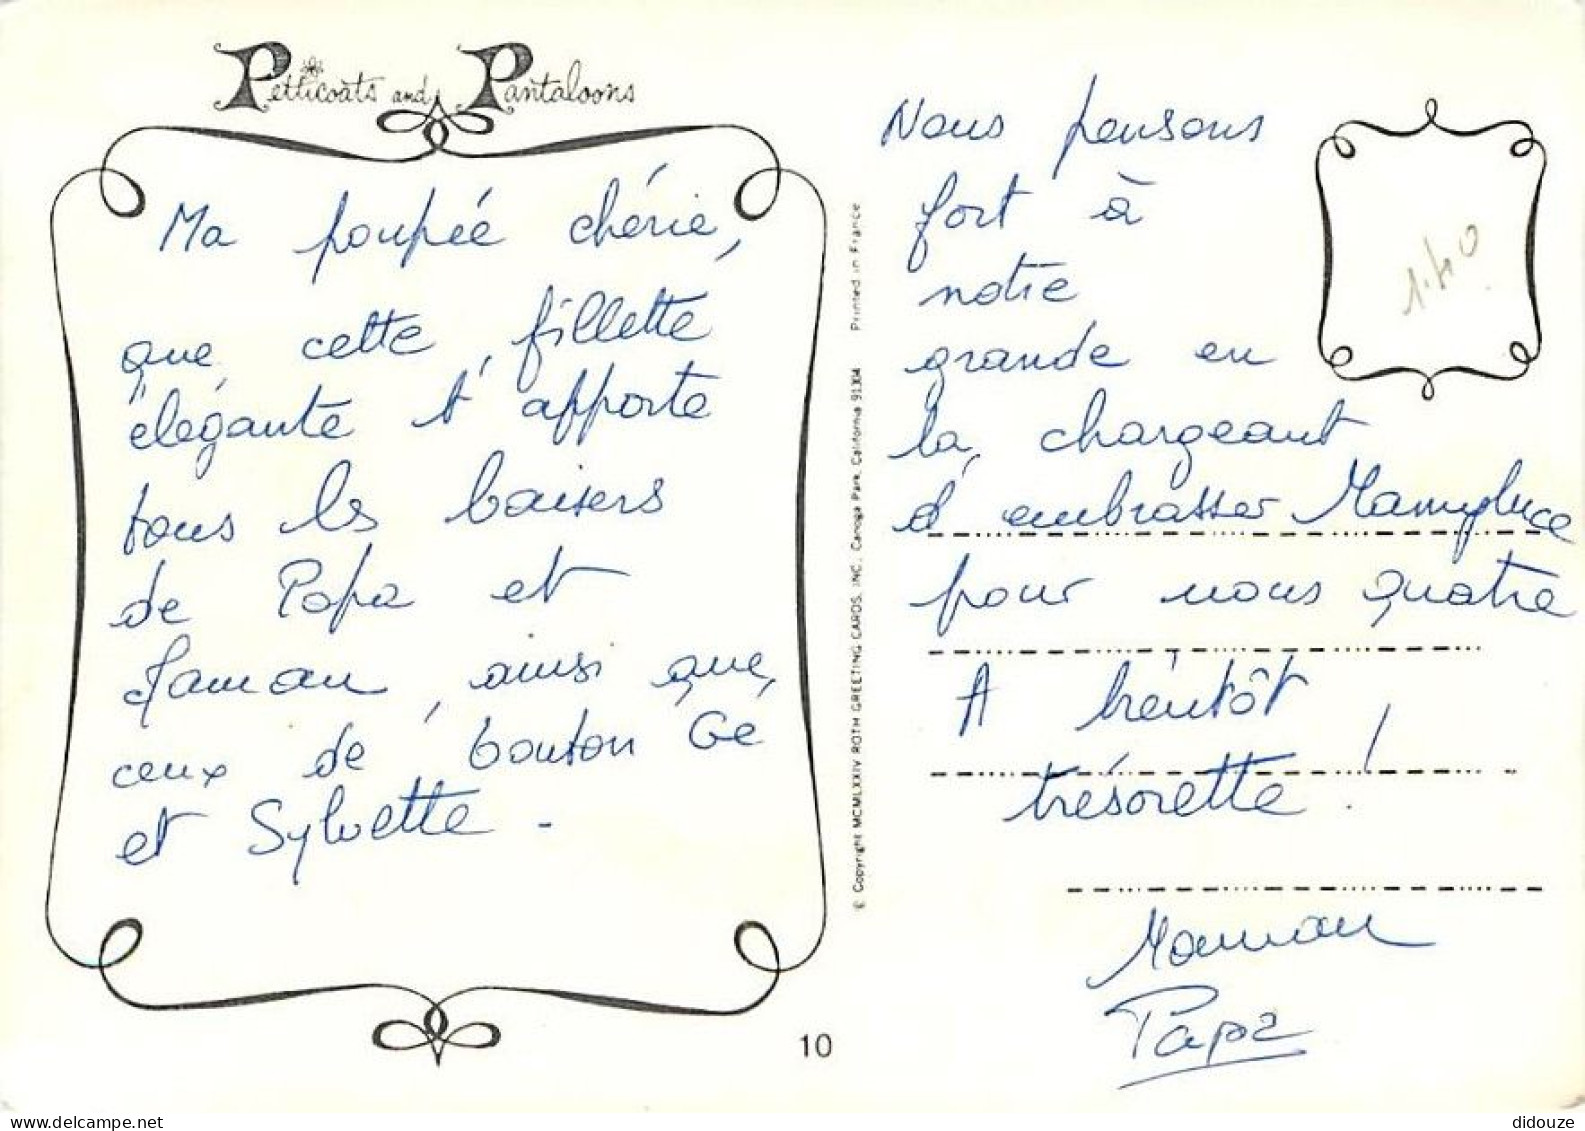 Petticoats and Pantaloons
Ma poupée chérie,
que cette fillette
élégante t'apporte
tous les baisers
de Papa et
Maman, ainsi que
ceux de bouton Gé
et Sylvette -
10
© Copyright MCMLXXIV ROTH GREETING CARDS, INC., Canoga Park, California 91304 Printed in France
Nous pensons
fort à
notre
grande en
la chargeant
d'embrasser Mamyluce
pour nous quatre
A bientôt
trésorette !
Maman
Papa
1.40
didouze